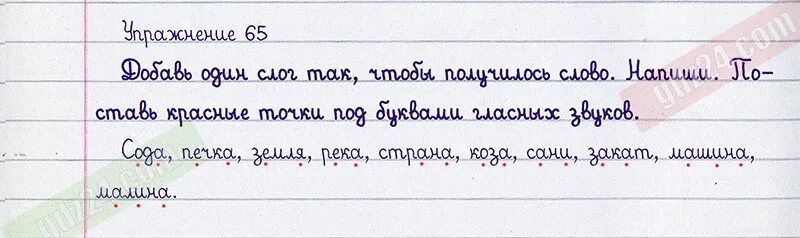 Упражнение 65
Добавь один слог так, чтобы получилось слово. Напиши. По-
ставь красные точки под буквами гласных звуков.
Сода, печка, земля, река, страна, коза, сани, закат, машина,
малина.
gdz24.com
gdz24.com